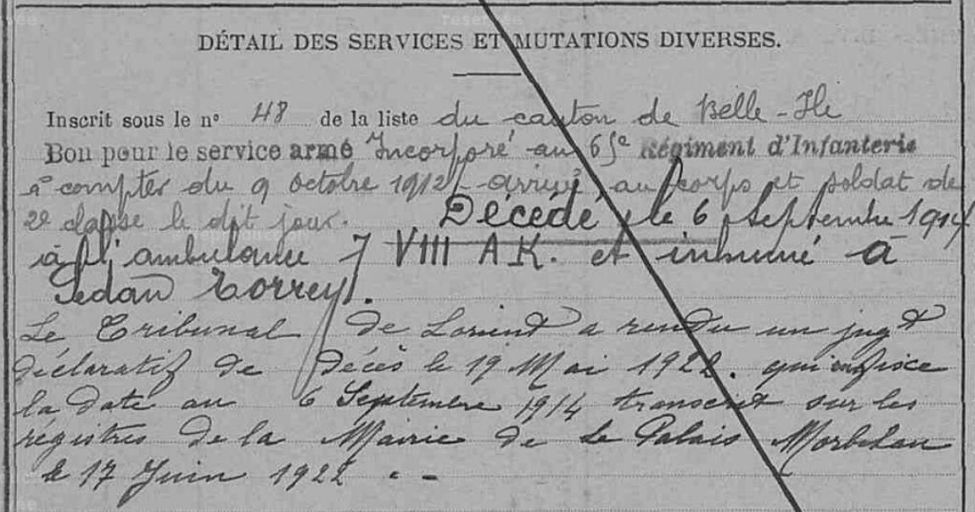 réservée
DÉTAIL DES SERVICES ET MUTATIONS DIVERSES.
Inscrit sous le n° 48 de la liste du canton de Belle-Ile
Bon pour le service armé Incorporé au 65e Régiment d'Infanterie
à compter du 9 octobre 1912 - arrivé au corps et soldat de
2e classe le dit jour. Décédé le 6 Septembre 1914
à l'ambulance 7 VIII A.K. et inhumé à
Sedan Torrey.
Le Tribunal de Lorient a rendu un jugt
déclaratif de décès le 19 Mai 1922. qui en fixe
la date au 6 Septembre 1914 transcrit sur les
registres de la Mairie de Le Palais Morbihan
le 17 Juin 1922 - -